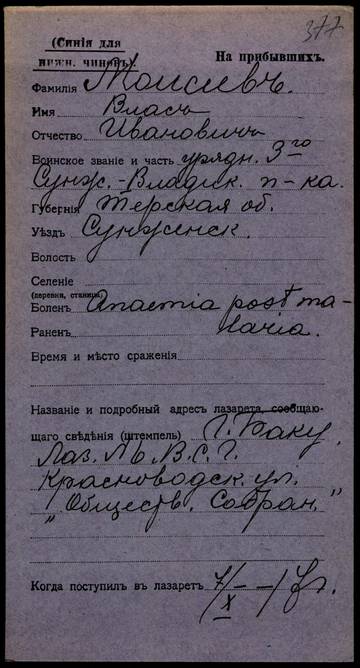 377
(Синія для
нижн. чиновъ).
На прибывшихъ.
Фамилія Моисіевъ.
Имя Власъ
Отчество Ивановичъ
Воинское званіе и часть урядн. 3го
Сунж.-Владик. п-ка.
Губернія Терская об.
Уѣздъ Сунженск.
Волость
Селеніе
(деревня, станица)
Боленъ Anaemia post ma-
Раненъ laria.
Время и мѣсто сраженія
Названіе и подробный адресъ лазарета, сообщаю-
щаго свѣдѣнія (штемпель) г. Баку
Лаз. № В.С.Г.
Красноводск. ул.
"Обществ. Собран."
Когда поступилъ въ лазаретъ 7/X